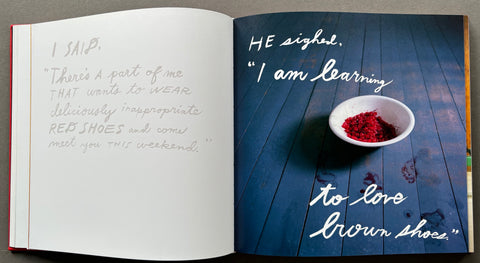 I SAID,
"There's A part of me
THAT wants to WEAR
deliciously inappropriate
RED SHOES and come
meet you THIS weekend."
HE sighed,
"I am learning
to love
brown shoes."